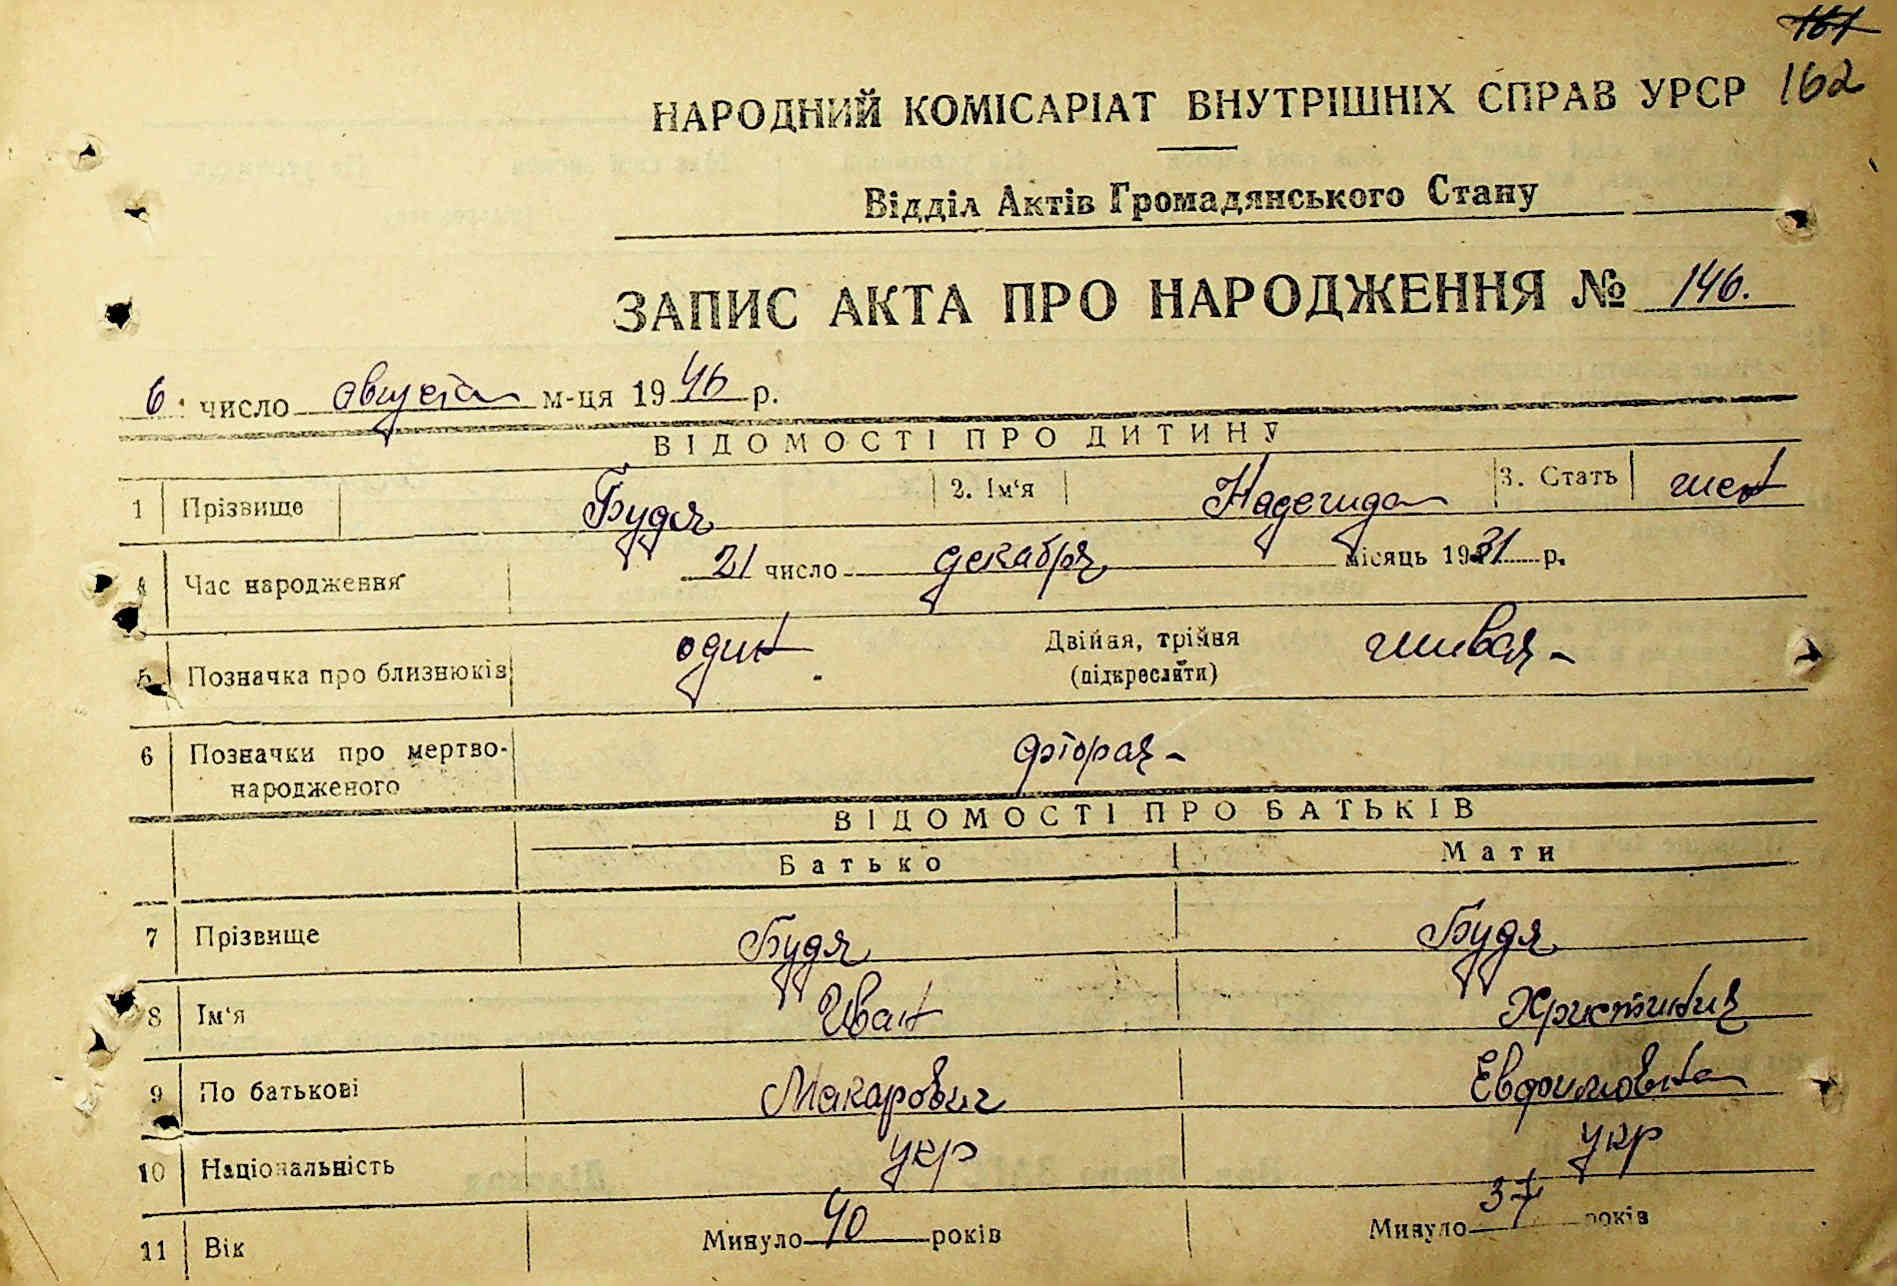 161
162
НАРОДНИЙ КОМІСАРІАТ ВНУТРІШНІХ СПРАВ УРСР
Відділ Актів Громадянського Стану
ЗАПИС АКТА ПРО НАРОДЖЕННЯ № 146.
6 число августа м-ця 1946 р.
ВІДОМОСТІ ПРО ДИТИНУ
1 Прізвище Будя 2. Ім'я Надежда 3. Стать жен
4 Час народження 21 число декабря місяць 1931 р.
5 Позначка про близнюків один Двійня, трійня (підкреслити) живая
6 Позначки про мертво-
народженого вторая
ВІДОМОСТІ ПРО БАТЬКІВ
Батько Мати
7 Прізвище Будя Будя
8 Ім'я Иван Христиния
9 По батькові Макарович Евфимовна
10 Національність укр укр
11 Вік Минуло 40 років Минуло 37 років